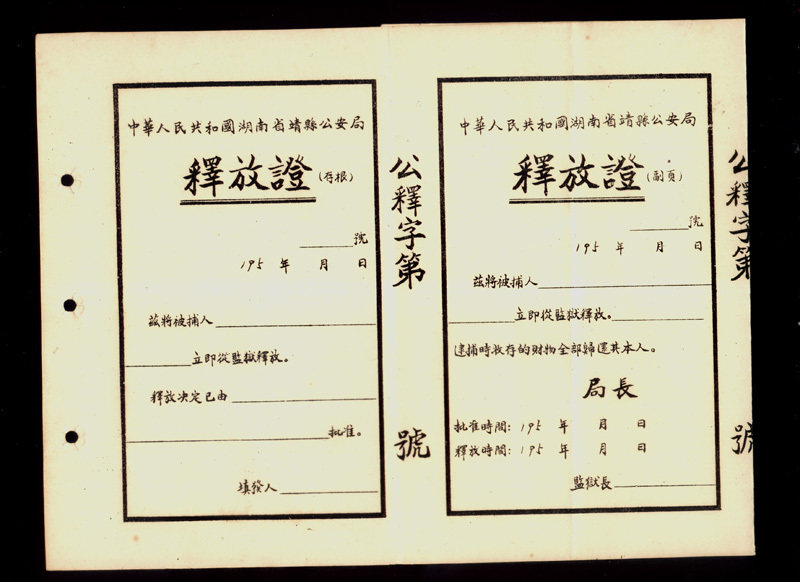 中華人民共和國湖南省靖縣公安局
釋放證(存根)
號
195 年 月 日
茲將被捕人
立即從監獄釋放。
釋放决定已由
批准。
填發人
公釋字第 號
中華人民共和國湖南省靖縣公安局
釋放證(副頁)
號
195 年 月 日
茲將被捕人
立即從監獄釋放。
逮捕時收存的财物全部歸還其本人。
局長
批准時間：195 年 月 日
釋放時間：195 年 月 日
監獄長
公釋字第 號